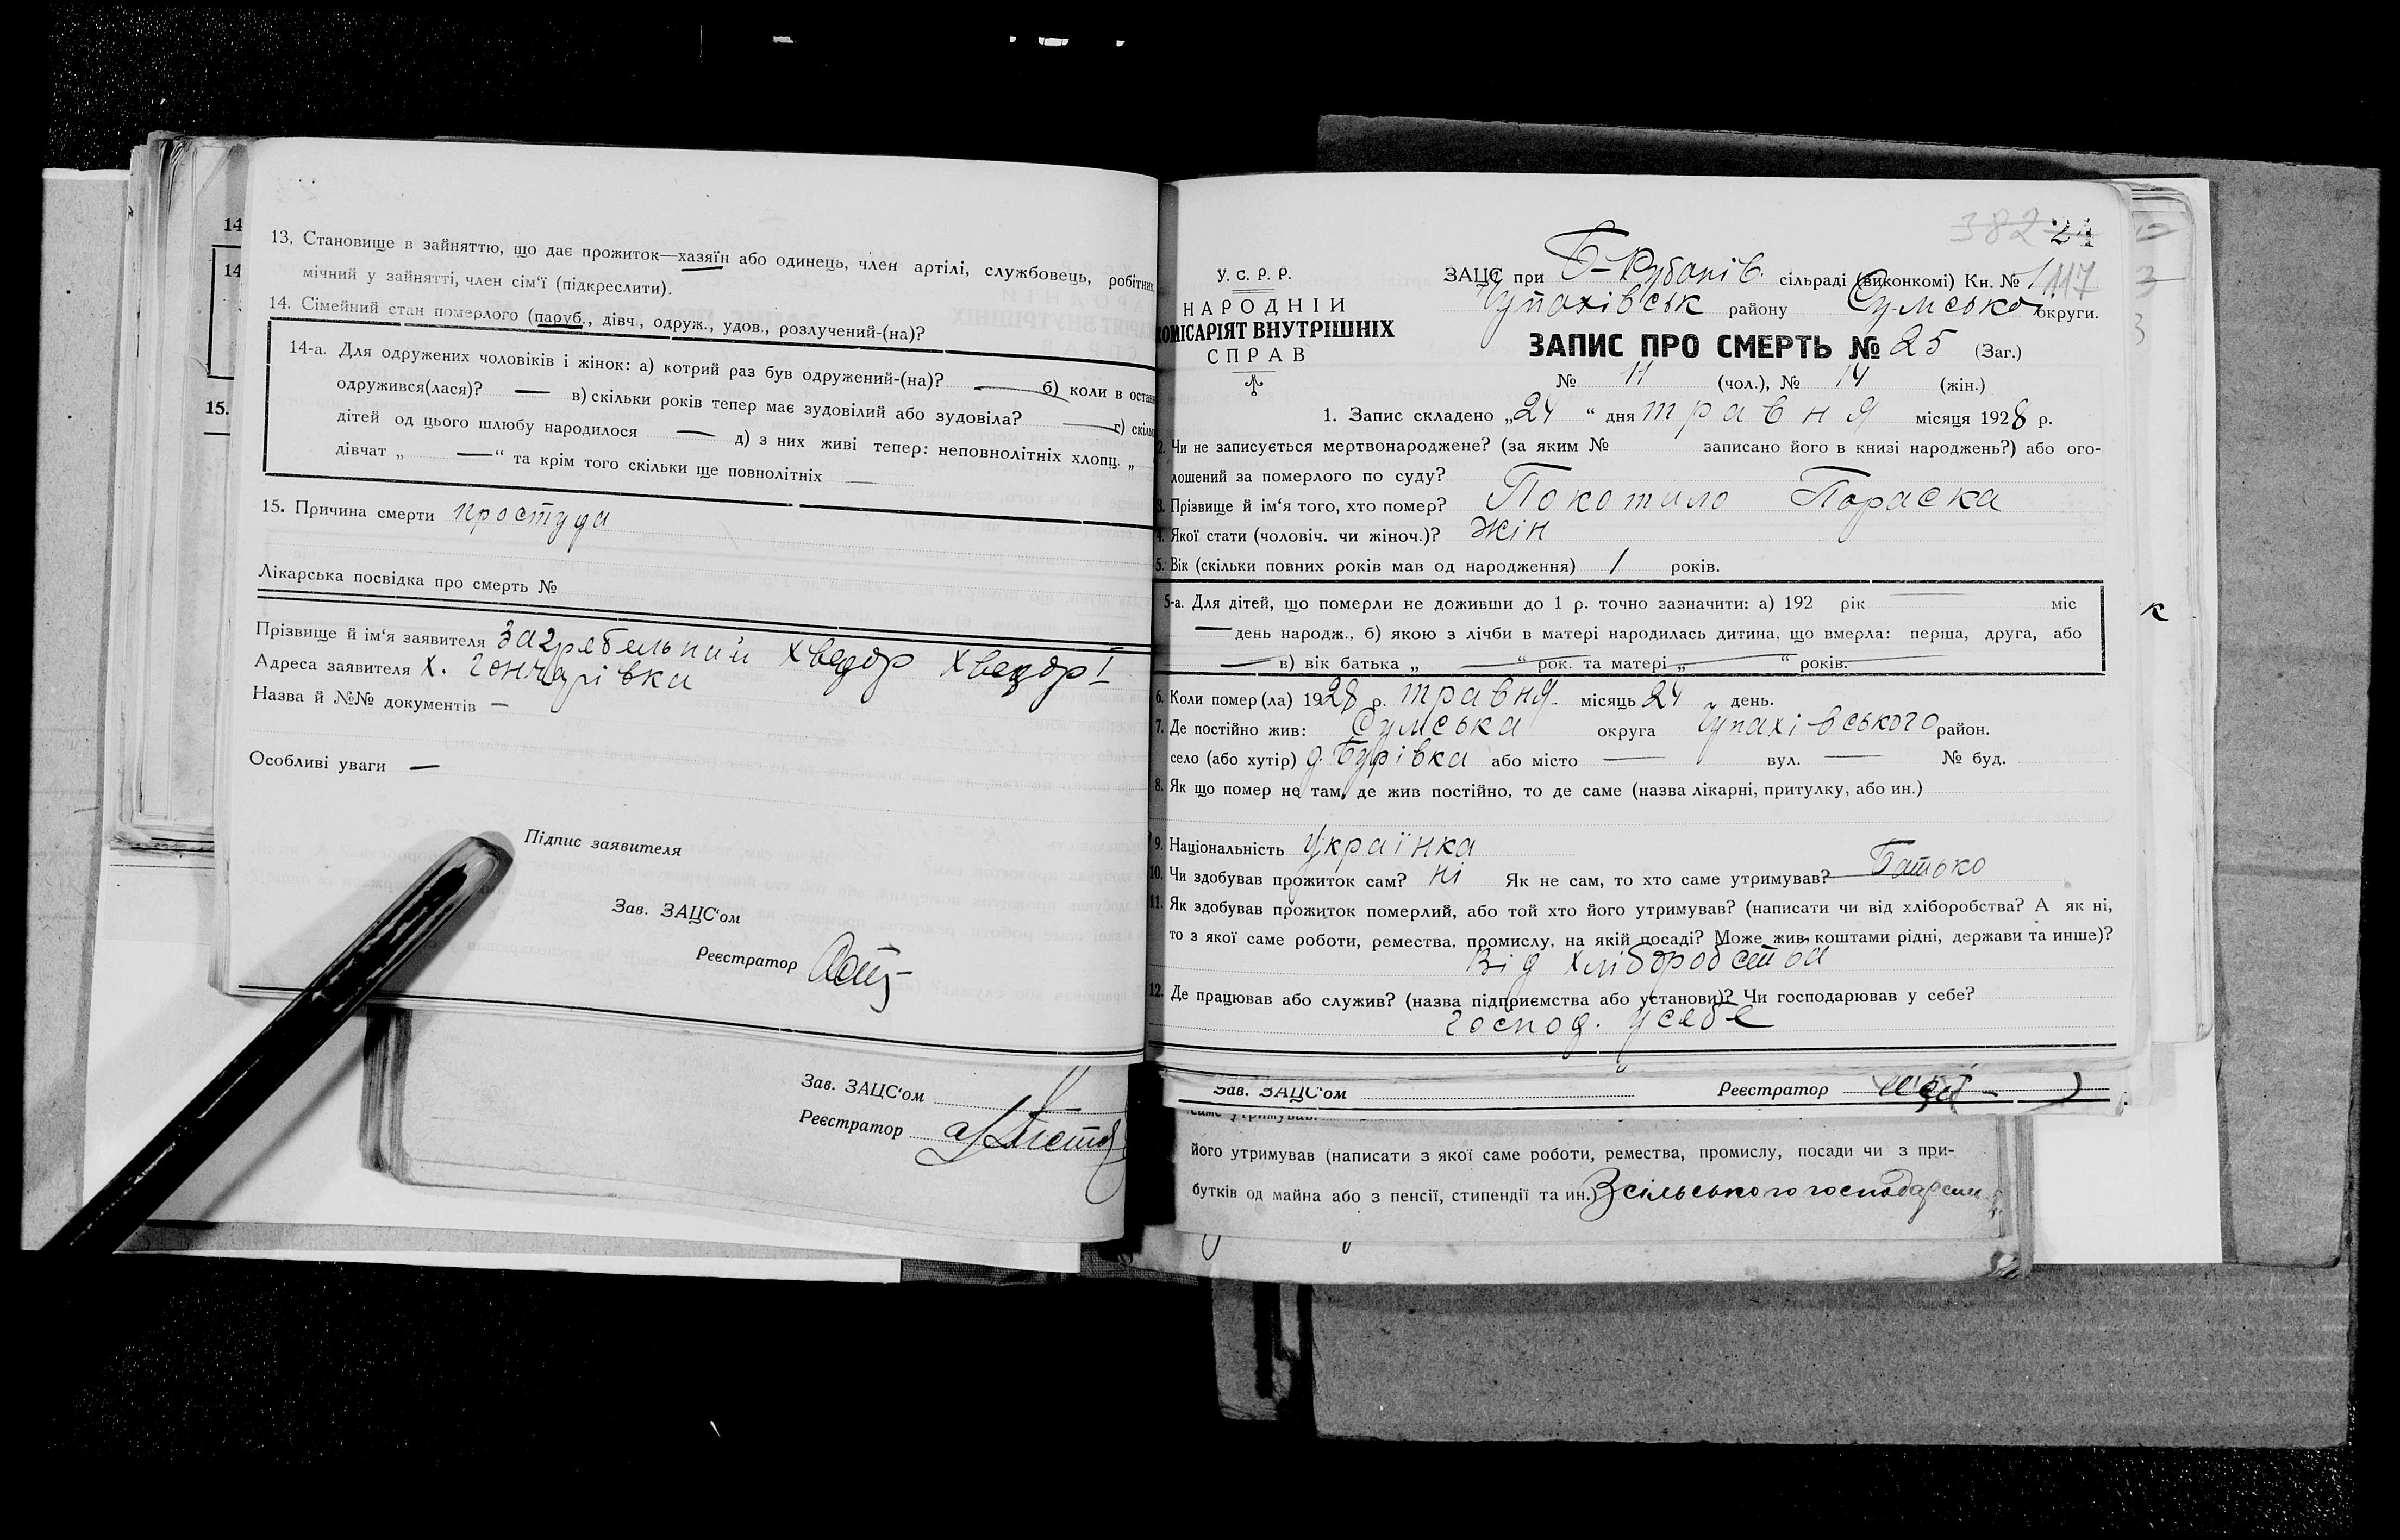 14
14
15.
13. Становище в зайняттю, що дає прожиток—хазяїн або одинець, член артілі, службовець, робітник,
мічний у зайнятті, член сім'ї (підкреслити).
14. Сімейний стан померлого (паруб., дівч., одруж., удов., розлучений-(на)?
14-а. Для одружених чоловіків і жінок: а) котрий раз був одружений-(на)? — б) коли в остан
одружився(лася)? — в) скільки років тепер має зудовілий або зудовіла? — г) скільк
дітей од цього шлюбу народилося — д) з них живі тепер: неповнолітніх хлопц. „
дівчат „ — “ та крім того скільки ще повнолітніх —
15. Причина смерти простуда
Лікарська посвідка про смерть №
Прізвище й ім'я заявителя Загребельний Хведор Хведор I
Адреса заявителя х. Гончарівка
Назва й №№ документів —
Особливі уваги —
Підпис заявителя
Зав. ЗАЦС'ом
Реєстратор
Зав. ЗАЦС'ом
Реєстратор
382 24
У. С. Р. Р.
НАРОДНІЙ
КОМІСАРІЯТ ВНУТРІШНІХ
СПРАВ
ЗАЦС при Б-Рубанів. сільраді (виконкомі) Кн. № 1 117
Чупахівськ району Сумської округи.
ЗАПИС ПРО СМЕРТЬ № 25 (Заг.)
№ 11 (чол.), № 14 (жін.)
1. Запис складено „24“ дня травня місяця 1928 р.
2. Чи не записується мертвонароджене? (за яким № записано його в книзі народжень?) або ого-
лошений за померлого по суду?
3. Прізвище й ім'я того, хто помер? Покотило Параска
4. Якої стати (чоловіч. чи жіноч.)? жін
5. Вік (скільки повних років мав од народження) 1 років.
5-а. Для дітей, що померли не доживши до 1 р. точно зазначити: а) 192 рік — міс
— день народж., б) якою з лічби в матері народилась дитина, що вмерла: перша, друга, або
— в) вік батька „ — “ рок. та матері „ — “ років.
6. Коли помер(ла) 1928 р. травня місяць 24 день.
7. Де постійно жив: Сумська округа Чупахівського район.
село (або хутір) д. Бурівка або місто — вул. — № буд.
8. Як що помер не там, де жив постійно, то де саме (назва лікарні, притулку, або ин.)
9. Національність Українка
10. Чи здобував прожиток сам? ні Як не сам, то хто саме утримував? Батько
11. Як здобував прожиток померлий, або той хто його утримував? (написати чи від хліборобства? А як ні,
то з якої саме роботи, ремества, промислу, на якій посаді? Може жив коштами рідні, держави та инше)?
Від хліборобства
12. Де працював або служив? (назва підприємства або установи)? Чи господарював у себе?
господ. у себе
Зав. ЗАЦС'ом Реєстратор
саме утримував.
його утримував (написати з якої саме роботи, ремества, промислу, посади чи з при-
бутків од майна або з пенсії, стипендії та ин.) З сільського господарств